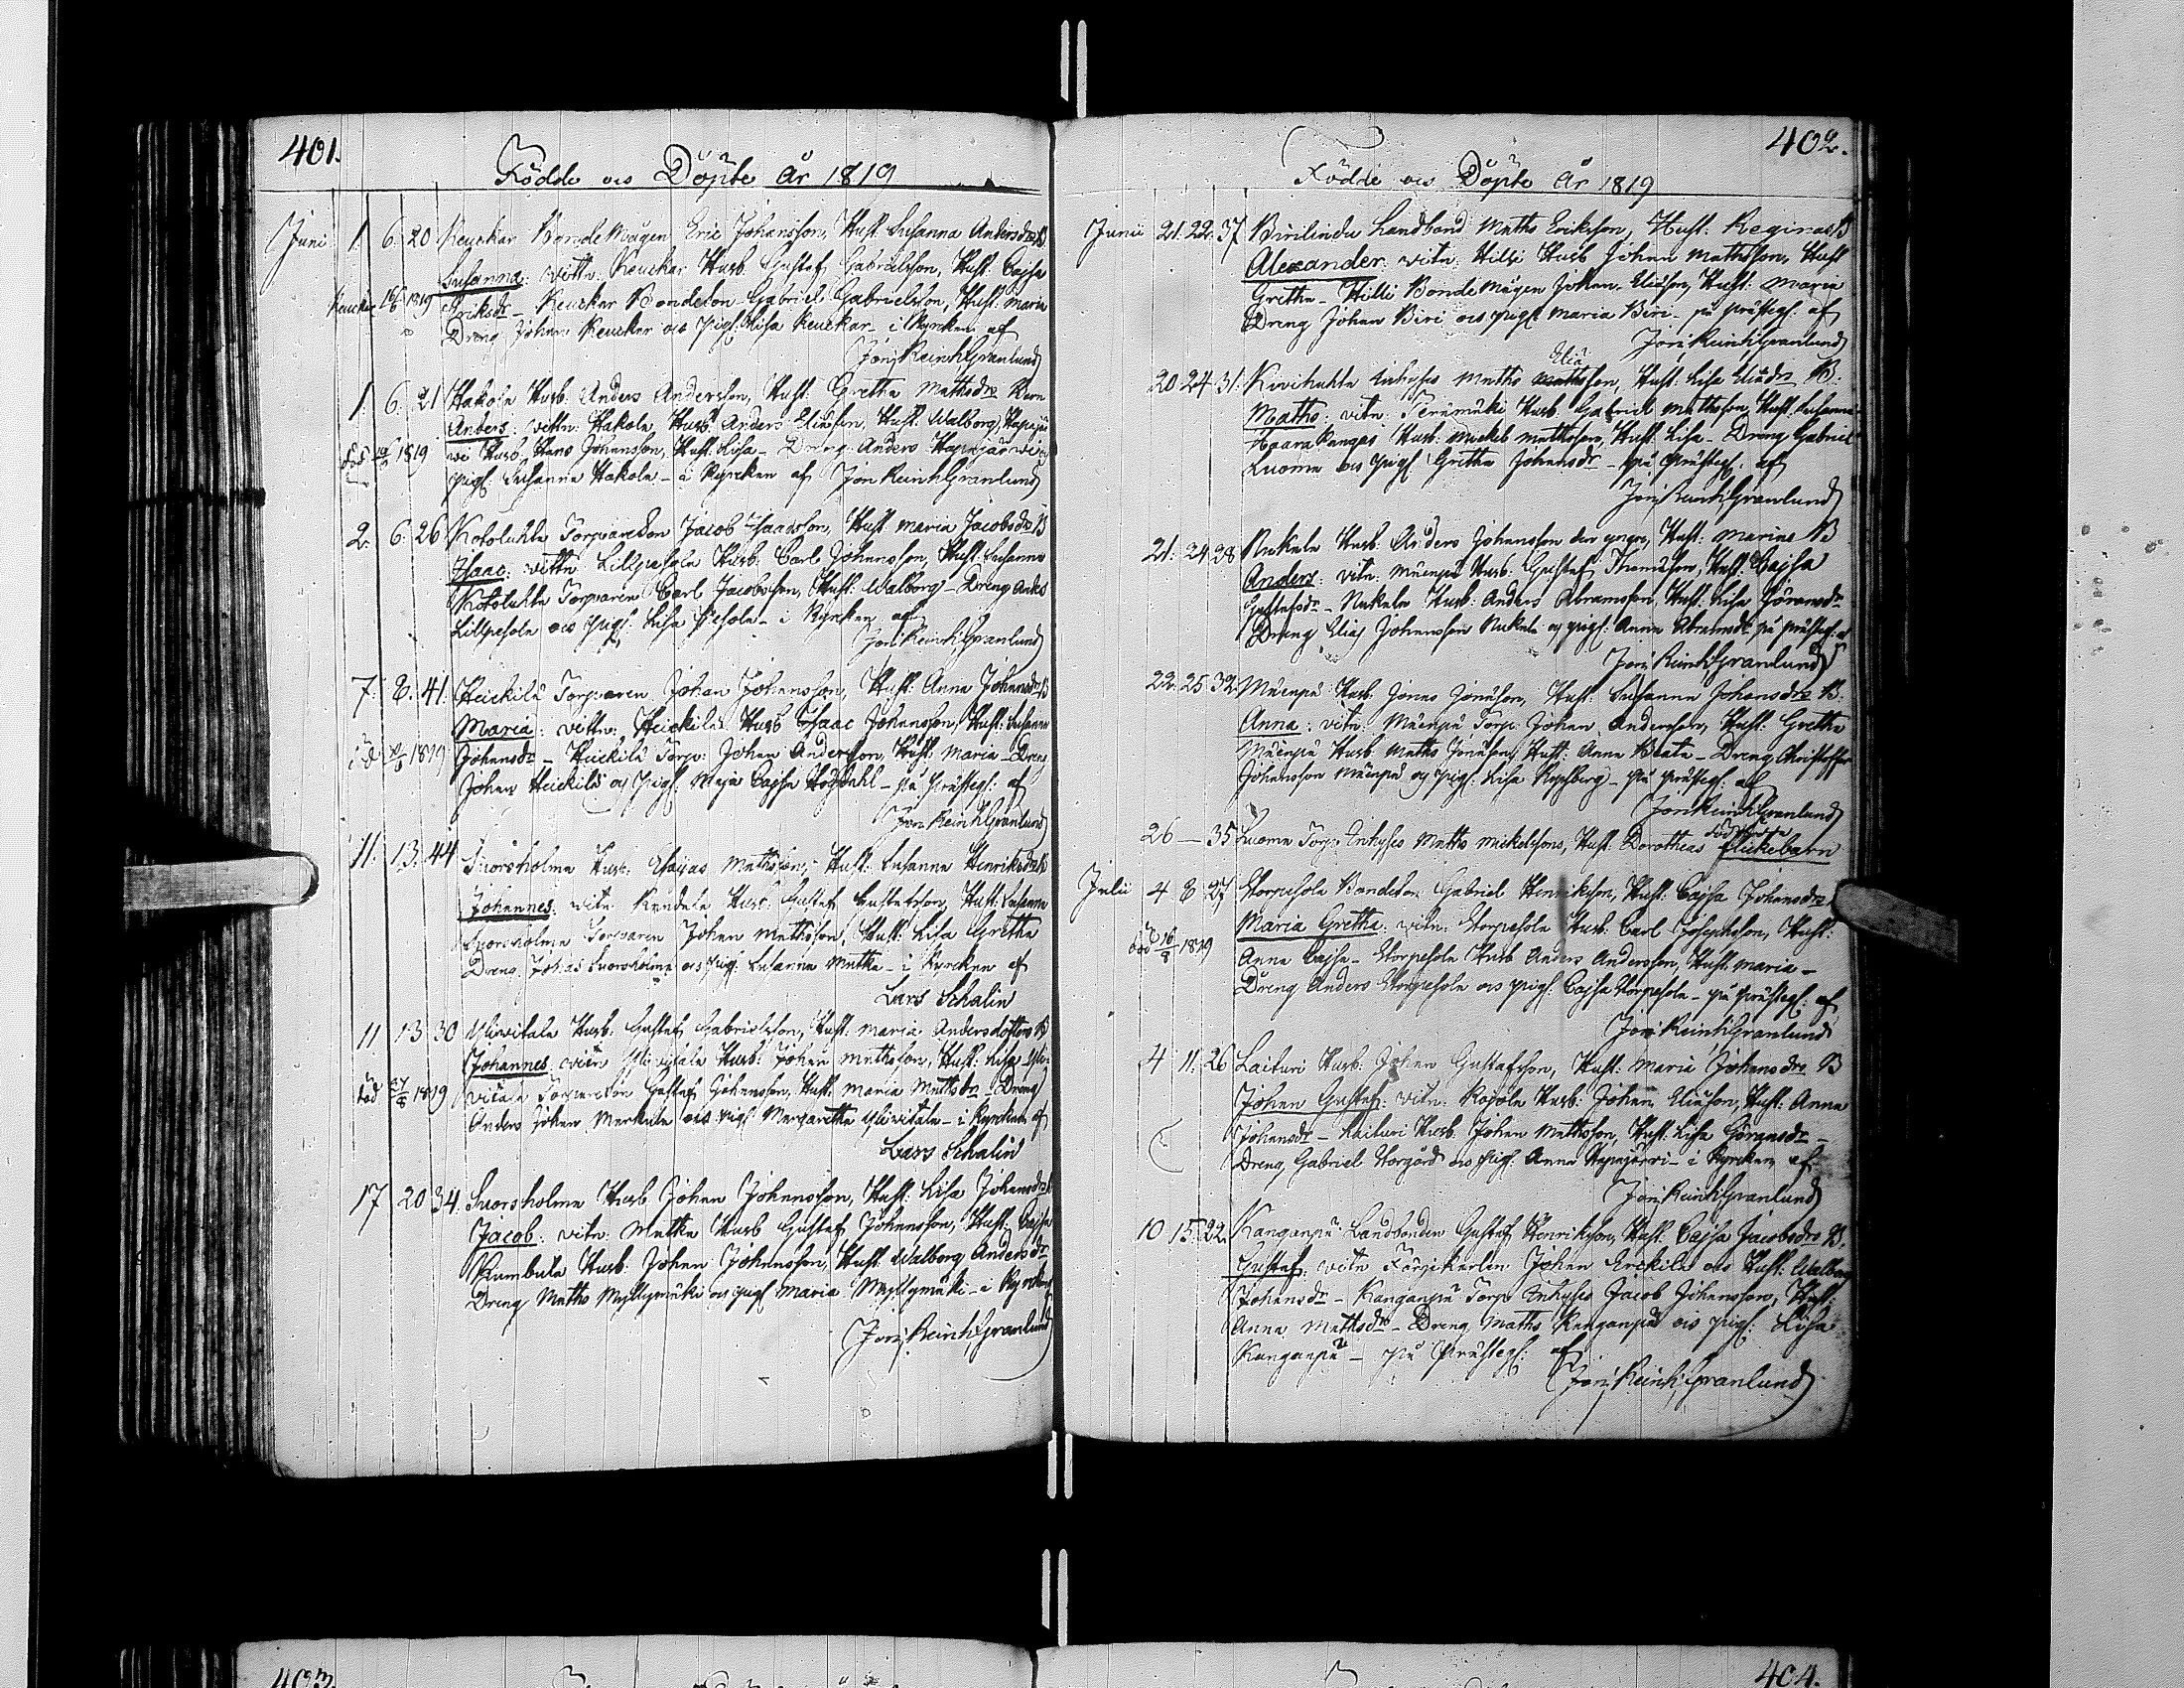 401.
Födde och Döpte År 1819
Juni 1. 6. 20 Keuckar Bonde Mågen Eric Johansson, Hust. Susanna Andersdrs B
Susanna: vittn. Keuckar Husb. Gustaf Gabrielsson, Hust. Cajsa
1819 Eriksdr - Keuckar Bondeson Gabriel Gabrielsson, Hust: Maria
Dreng Johan Keuckar och pig: Lisa Keuckar - i Kyrckan af
Jon: Reinh: Granlund
1. 6. 21 Hakola Husb: Anders Andersson, Hust: Gretha Mathsdrs Barn
Anders: vittn: Hakola Husb: Anders Eliæson, Hust: Walborg, Hapajär
död 1819 wi Husb: Hans Johansson, Hust: Lisa - Dreng Anders Hapajärwi och
pig: Susanna Hakola - i Kyrckan af Jon Reinh Granlund
2. 6. 26 Kotoluhta Torpareson Jacob Isaacsson, Hust: Maria Jacobsdrs B
Isaac: vittn: Lillpesola Husb: Carl Johansson, Hust: Susanna
Kotoluhta Torparen Carl Jacobsson, Hust: Walborg - Dreng Anders
Lillpesola och pig: Lisa Pesola - i Kyrckan af
Jon: Reinh: Granlund
7. 8. 41. Heickilä Torparen Johan Johansson, Hust: Anna Johansdrs B
Maria: vittn: Heickilä Husb Isaac Johansson, Hust: Susanna
1819 Johansdr - Heickilä Torp: Johan Andersson, Hust: Maria - Dreng
Johan Heickilä och pig: Maja Cajsa Högdahl - på Prästeg: af
Jon Reinh Granlund
11. 13. 44 Snorsholma Husb: Esaijas Mathsson, Hust: Susanna Henriksdrs B
Johannes: vitn Kendala Husb: Gustaf Gustafsson, Hust: Susanna
Snorsholma Torparen Johan Mathsson, Hust: Lisa Gretha
Dreng Johas Snorsholma och pig: Susanna Mutka - i Kyrckan af
Lars Schalin
11 13 30 Yliwitala Husb: Gustaf Gabrielsson, Hust: Maria Andersdotters B
Johannes: vitn Yliwitala Husb: Johan Mathsson, Hust: Lisa Yli-
död 27/8 1819 witala Torpareson Gustaf Johansson, Hust: Maria Mathsdr - Dreng
Anders Johan Markula och pig: Margaretha Yliwitala - i Kyrckan af
Lars Schalin
17 20 34. Snorsholma Husb Johan Johansson, Hust: Lisa Johansdrs B
Jacob: vitn: Mutka Husb Gustaf Johansson, Hust: Cajsa
Rumbula Husb: Johan Johansson, Hust: Walborg Andersdr
Dreng Maths Myllymäki och pig: Maria Myllymäki - i Kyrckan
Jon: Reinh: Granlund
402.
Födde och Döpte År 1819
Junii 21. 22. 37 Birilinda Landbond Maths Eriksson, Hust. Reginas B
Alexander: vitn: Hilli Husb Johan Mathsson, Hust
Gretha - Hilli Bonde Mågen Johan Eliæson, Hust: Maria
Dreng Johan Biri och pig: Maria Biri - på prästeg: af
Jon: Reinh: Granlund
Eliæ
20 24 31. Kivihuhta Inhyses Maths Mathsson, Hust: Lisa Eliædrs B.
Maths: vitn: Tervamäki Husb Gabriel Mathsson, Hust: Susanna
Haarakangas Husb: Mickel Mathsson, Hust: Lisa - Dreng Gabriel
Luoma och pig: Gretha Johansdr - på Prästeg: af
Jon: Reinh: Granlund
21. 24 28 Nukala Husb: Anders Johansson den yngre, Hust: Marias B
Anders: vitn: Mäenpä Husb: Gustaf Thomasson, Hust: Cajsa
Gustafsdr - Nukala Husb: Anders Abramsson, Hust: Lisa Göransdr
Dreng Elias Johansson Nukala och pig: Anna Abramsdr på prästeg: af
Jon Reinh Granlund
22. 25 32. Mäenpä Husb: Jonas Jonæson, Hust: Susanna Johansdrs B.
Anna: vitn: Mäenpä Torp: Johan Andersson, Hust: Gretha
Mäenpä Husb Maths Jonæson, Hust: Anna Beata - Dreng Christoffer
Johansson Mäenpä och pig: Lisa Kopsberg - på prästeg: af
Jon Reinh Granlund
26 — 35 Luoma Torp: Inhyses Maths Mickelssons, Hust: Dorotheas flickebarn
Julii 4 8. 27 Storpesola Bondeson Gabriel Henriksson, Hust: Cajsa Johansdrs
Maria Gretha: vitn: Storpesola Husb: Carl Josephsson, Hust:
död 16/8 1819 Anna Cajsa - Storpesola Husb Anders Andersson, Hust: Maria -
Dreng Anders Storpesola och pig: Cajsa Storpesola - på prästeg: af
Jon: Reinh: Granlund
4 11. 26 Laituri Husb: Johan Gustafsson, Hust: Maria Johansdrs B
Johan Gustaf: vitn: Rojola Husb: Johan Eliæson, Hust: Anna
Johansdr - Laituri Husb: Johan Mathsson, Hust: Lisa Göransdr -
Dreng Gabriel Storgård och pig: Anna Hapajärvi - i Kyrckan af
Jon: Reinh Granlund
10 15. 22. Kanganpä Landbonden Gustaf Henriksson, Hust: Cajsa Jacobsdrs B.
Gustaf: vitn Färjekarlen Johan Erckilä och Hust: Walborg
Johansdr - Kanganpä Torp: Inhyses Jacob Johansson, Hust:
Anna Mathsdr - Dreng Maths Kanganpä och pig: Lisa
Kanganpä - på Prästeg: af
Jon: Reinh: Granlund
403
404.